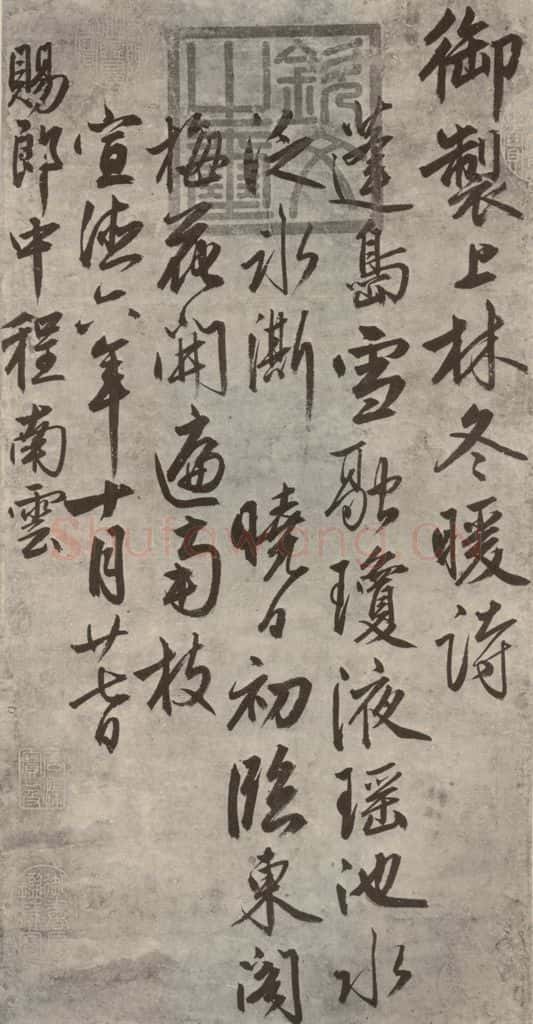 御製上林冬暖詩
蓬島雪融瓊液瑶池水
泛冰澌 曉日初臨東閣
梅花開遍南枝
宣德六年十月廿七日
賜郎中程南雲
欽文之璽
Shufawang.cn